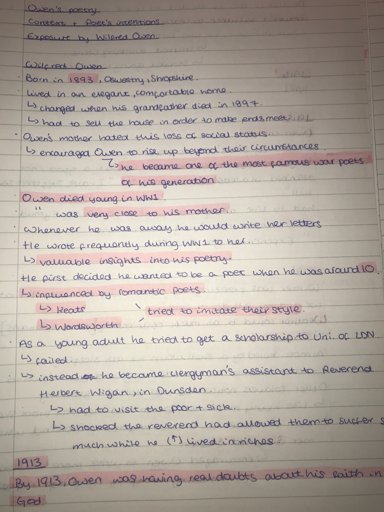 Owen's poetry
Context + Poet's intentions
Exposure by Wilfred Owen
Wilfred Owen
Born in 1893, Oswestry, Shropshire.
· Lived in an elegant, comfortable home
↳ changed when his grandfather died in 1897.
↳ had to sell the house in order to make ends meet
· Owen's mother hated this loss of social status
↳ encouraged Owen to rise up beyond their circumstances
↳ he became one of the most famous war poets
of his generation
Owen died young in WW1
· " was very close to his mother.
· Whenever he was away he would write her letters
· He wrote frequently during WW1 to her.
↳ valuable insights into his poetry.
· He first decided he wanted to be a poet when he was around 10.
↳ influenced by romantic poets.
↳ Keats
↳ Wordsworth
tried to imitate their style
· As a young adult he tried to get a scholarship to Uni. of LDN
↳ failed
↳ instead he became clergyman's assistant to Reverend
Herbert Wigan, in Dunsden
↳ had to visit the poor + sick.
↳ shocked the reverend had allowed them to suffer s
much while he (↑) lived in riches.
1913
By 1913, Owen was having real doubts about his faith in
God.